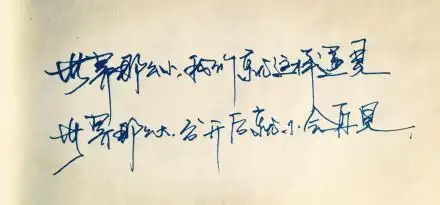 世界那么小.我们就这样遇見
世界那么大.分开后就不会再見